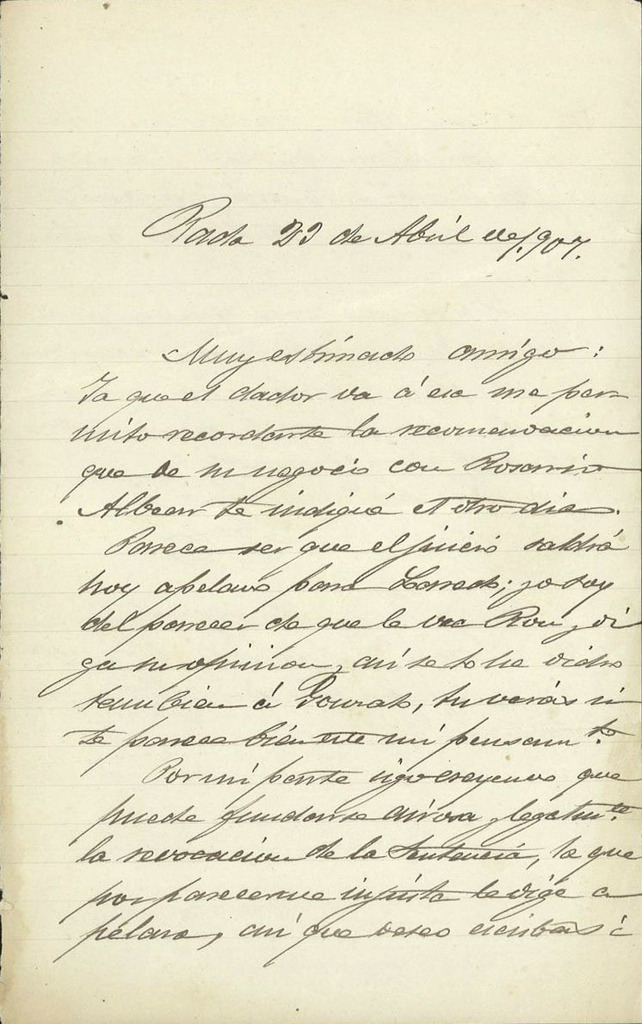 Rada 23 de Abril de 1,907.
Muy estimado amigo:
Ya que el dador va á esa me per
mito recordarte la recomendacion
que de su negocio con Rosario
Albear te indiqué el otro dia.
Parece ser que el juicio saldrá
hoy apelado para Laredo; yo soy
del parecer de que le vea Rou y di
ga su opinion, asi se lo he dicho
tambien á Gonzalo, tu verás si
te parece bien este mi pensamto.
Por mi parte sigo creyendo que
puede fundarse airosa y legalmte.
la revocacion de la Sentencia, la que
por parecerme injusta le dige a
pelara, asi que deseo escribas á